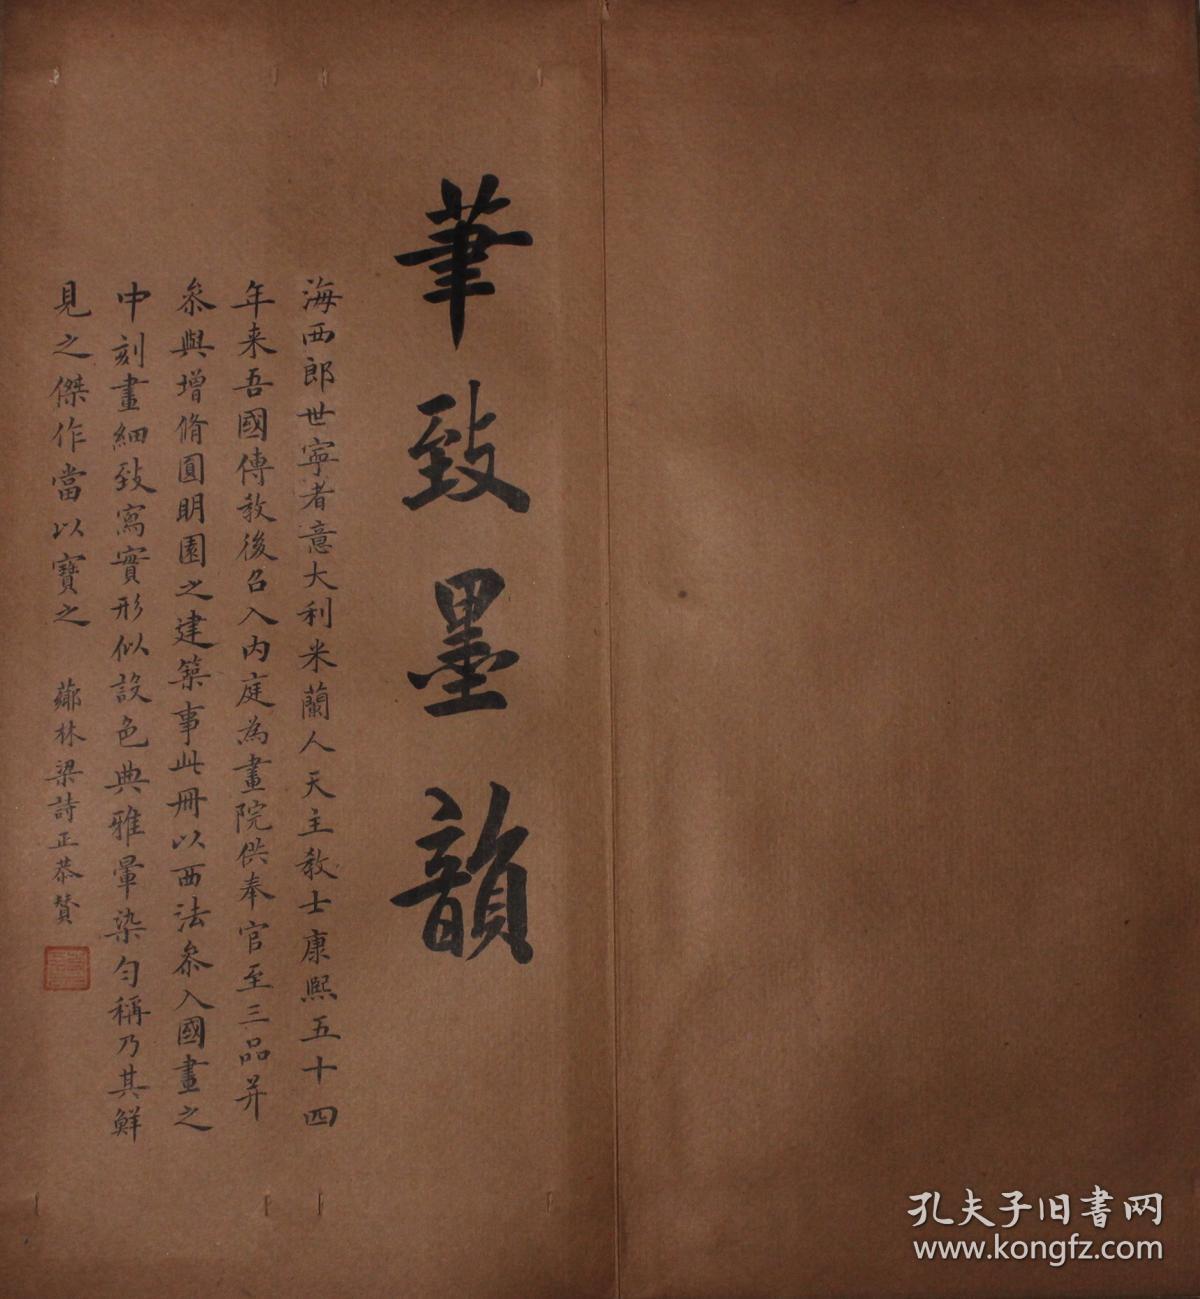 筆致墨韻
海西郎世寧者意大利米蘭人天主教士康熙五十四
年来吾國傳教後召入内庭為畫院供奉官至三品并
叅與增脩圓明園之建築事此冊以西法叅入國畫之
中刻畫細致寫實形似設色典雅暈染勻稱乃其鮮
見之傑作當以寶之 薌林梁詩正恭贊
孔夫子旧書网
www.kongfz.com